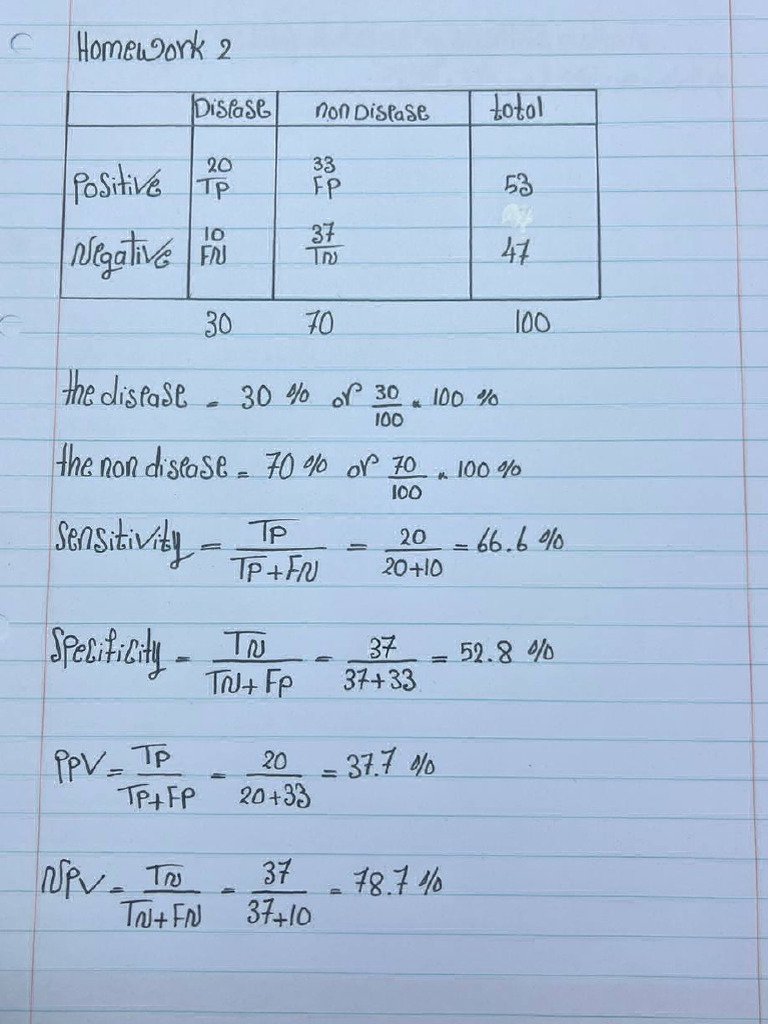 Homework 2
Disease non Disease total
20 33
Positive TP FP 53
10 37
Negative FN TN 47
30 70 100
the disease = 30 % or 30/100 × 100 %
the non disease = 70 % or 70/100 × 100 %
Sensitivity = TP/TP+FN = 20/20+10 = 66.6 %
Specificity = TN/TN+FP = 37/37+33 = 52.8 %
PPV = TP/TP+FP = 20/20+33 = 37.7 %
NPV = TN/TN+FN = 37/37+10 = 78.7 %